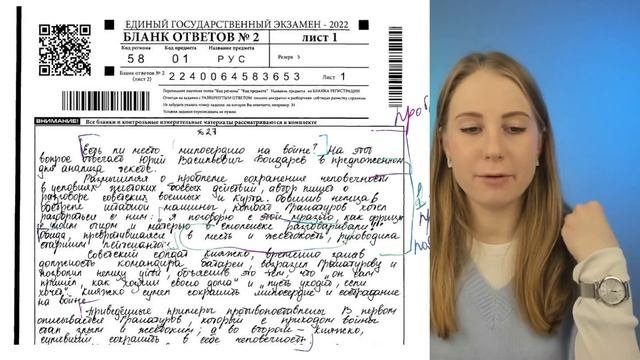 ЕДИНЫЙ ГОСУДАРСТВЕННЫЙ ЭКЗАМЕН - 2022
БЛАНК ОТВЕТОВ № 2 лист 1
Код региона Код предмета Название предмета
58 01 РУС Резерв
Бланк ответов № 2 (лист 2) 2240064583653 Лист 1
Перепишите значения полей "Код региона", "Код предмета", "Название предмета" из БЛАНКА РЕГИСТРАЦИИ
ВНИМАНИЕ! Все бланки и контрольные измерительные материалы рассматриваются в комплекте
№27
Есть ли место милосердию на войне? На этот
вопрос отвечает Юрий Васильевич Бондарев в предложенном
для анализа тексте.
Размышляя о проблеме сохранения человечности
в условиях жестоких боевых действий, автор пишет о
разговоре советских военных и Курта. Обвинив немца в
обстреле штабной машины, комбат Гранатуров хотел
разобраться с ним: "я поговорю с этой мразью, как фрицы
с моим отцом и матерью в Смоленске разговаривали!"
Обида, превратившаяся в месть и жестокость, руководила
старшим лейтенантом.
Советский солдат Княжко, временно заняв
должность командира батареи, возразил Гранатурову и
позволил немцу уйти, объяснив это тем, что "он сам
пришёл, как хозяин своего дома" и "пусть уходит, если
хочет". Княжко сумел сохранить милосердие и сострадание
на войне.
Приведённые примеры противопоставлены. В первом
описывается Гранатуров, который с приходом войны
стал злым и жестоким; а во втором - Княжко,
сумевший сохранить в себе человечность.